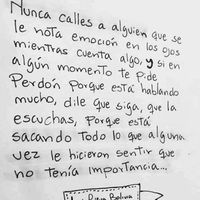 Nunca calles a alguien que se
le nota emoción en los ojos
mientras cuenta algo, y si en
algún momento te pide
Perdón porque está hablando
mucho, dile que siga, que la
escuchas, Porque está
sacando Todo lo que alguna
vez le hicieron sentir que
no tenía importancia...